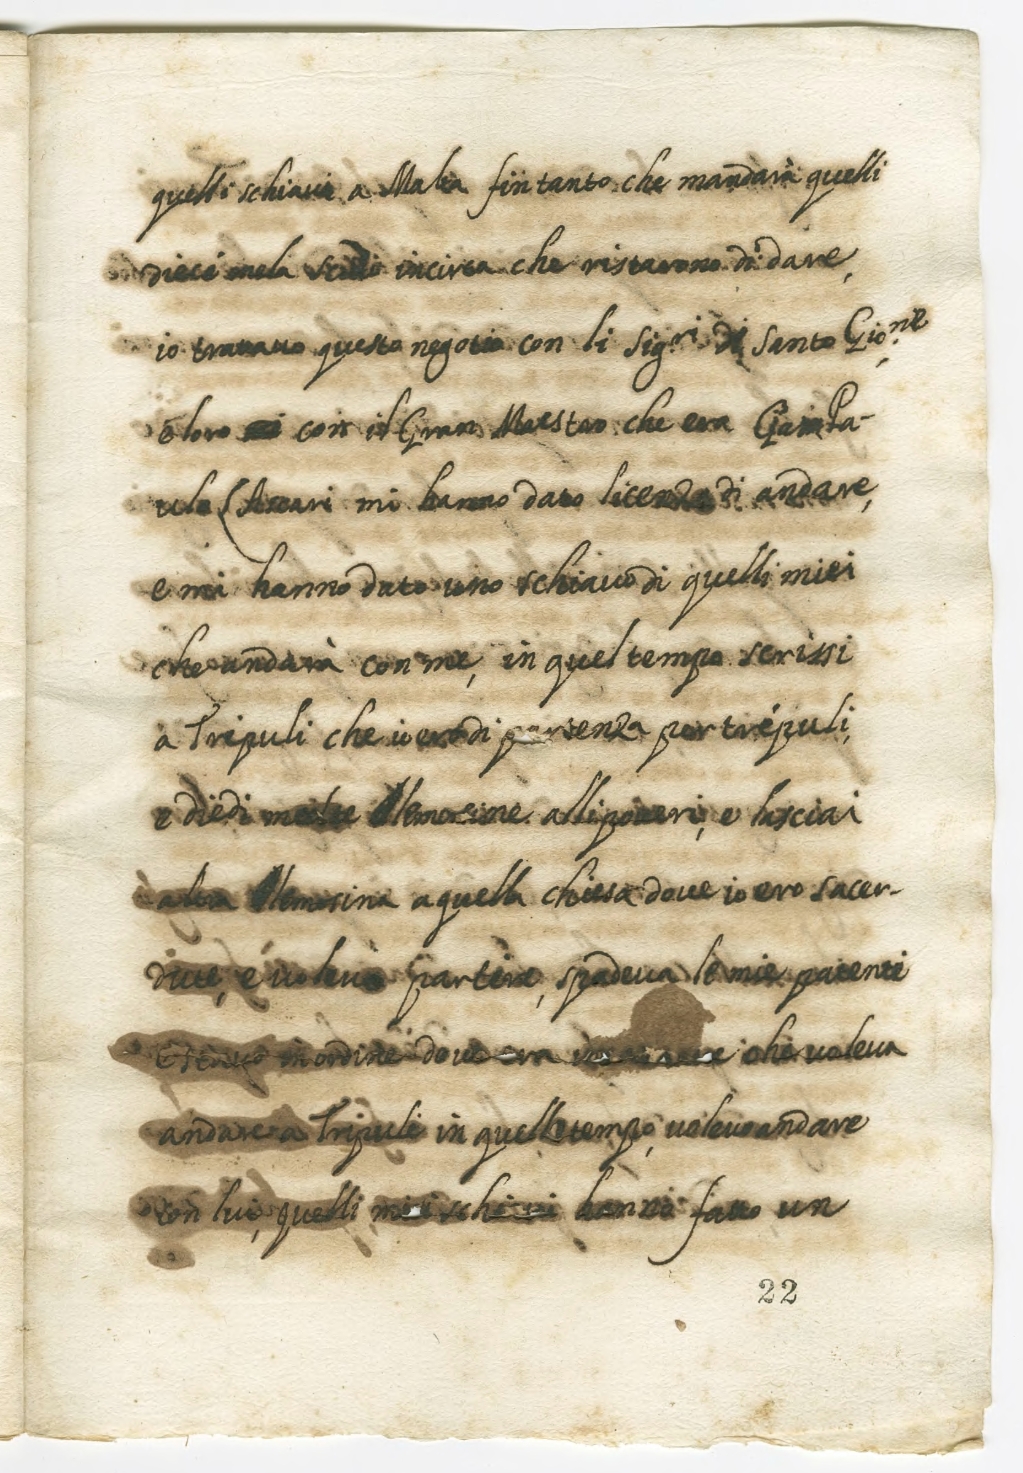 quelli schiavi a Malta fin tanto che mandarà quelli
diece mela scudi incirca che ristarono di dare,
io trattatto questo negotio con li Sig.ri di Santo Gio.ne
é loro con il Gran Maestro che era Giam Pa-
ulo Lascari mi hanno dato licenza di andare,
e mi hanno dato uno schiavo di quelli miei
che andarà con me, in quel tempo scrissi
a Tripuli che io ero di partenza per trépuli,
e diedi molte elemosine alli poveri, e lasciai
altra elemosina a quella chiesa dove io ero sacer-
dute, é volevo partire, spadeva le mie patenti
e stavo in ordine dove era che voleva
andare a Tripuli in quelle tempo, volevo andare
con lui, quelli miei schiavi hanno fatto un
22